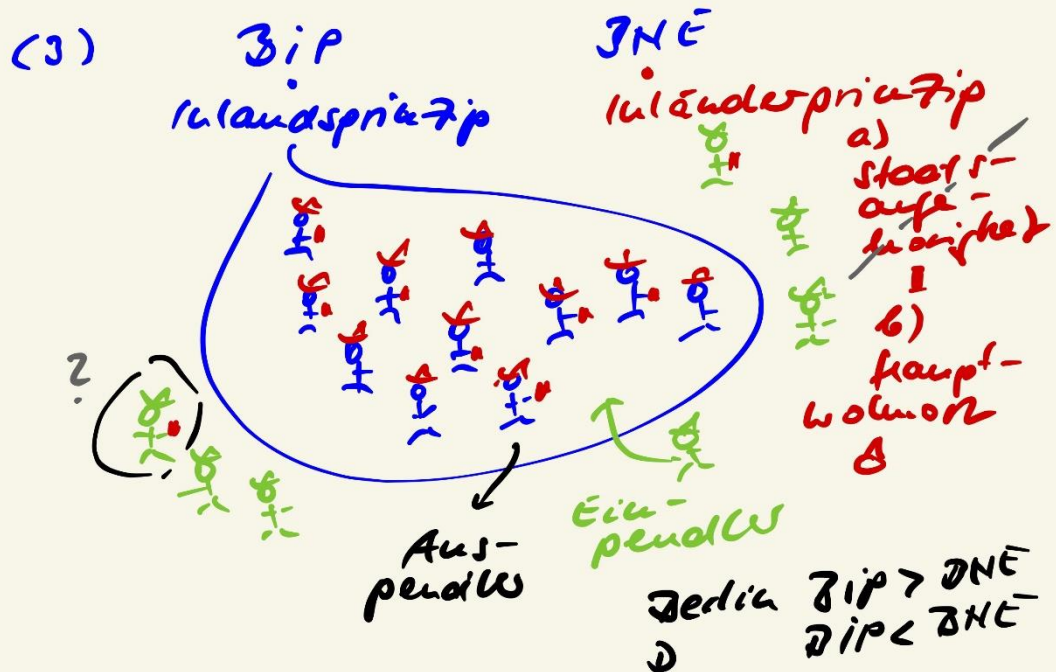 (3) BiP BNE
Inlandsprinzip
Inländerprinzip
a)
Staats-
ange-
hörigkeit
b)
Haupt-
wohnort
?
Aus-
pendler
Ein-
pendler
Berlin BiP > BNE
D BiP < BNE